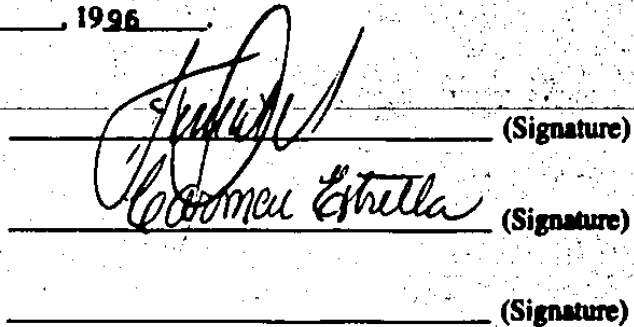 , 1996.
(Signature)
Carmen Estrella (Signature)
(Signature)